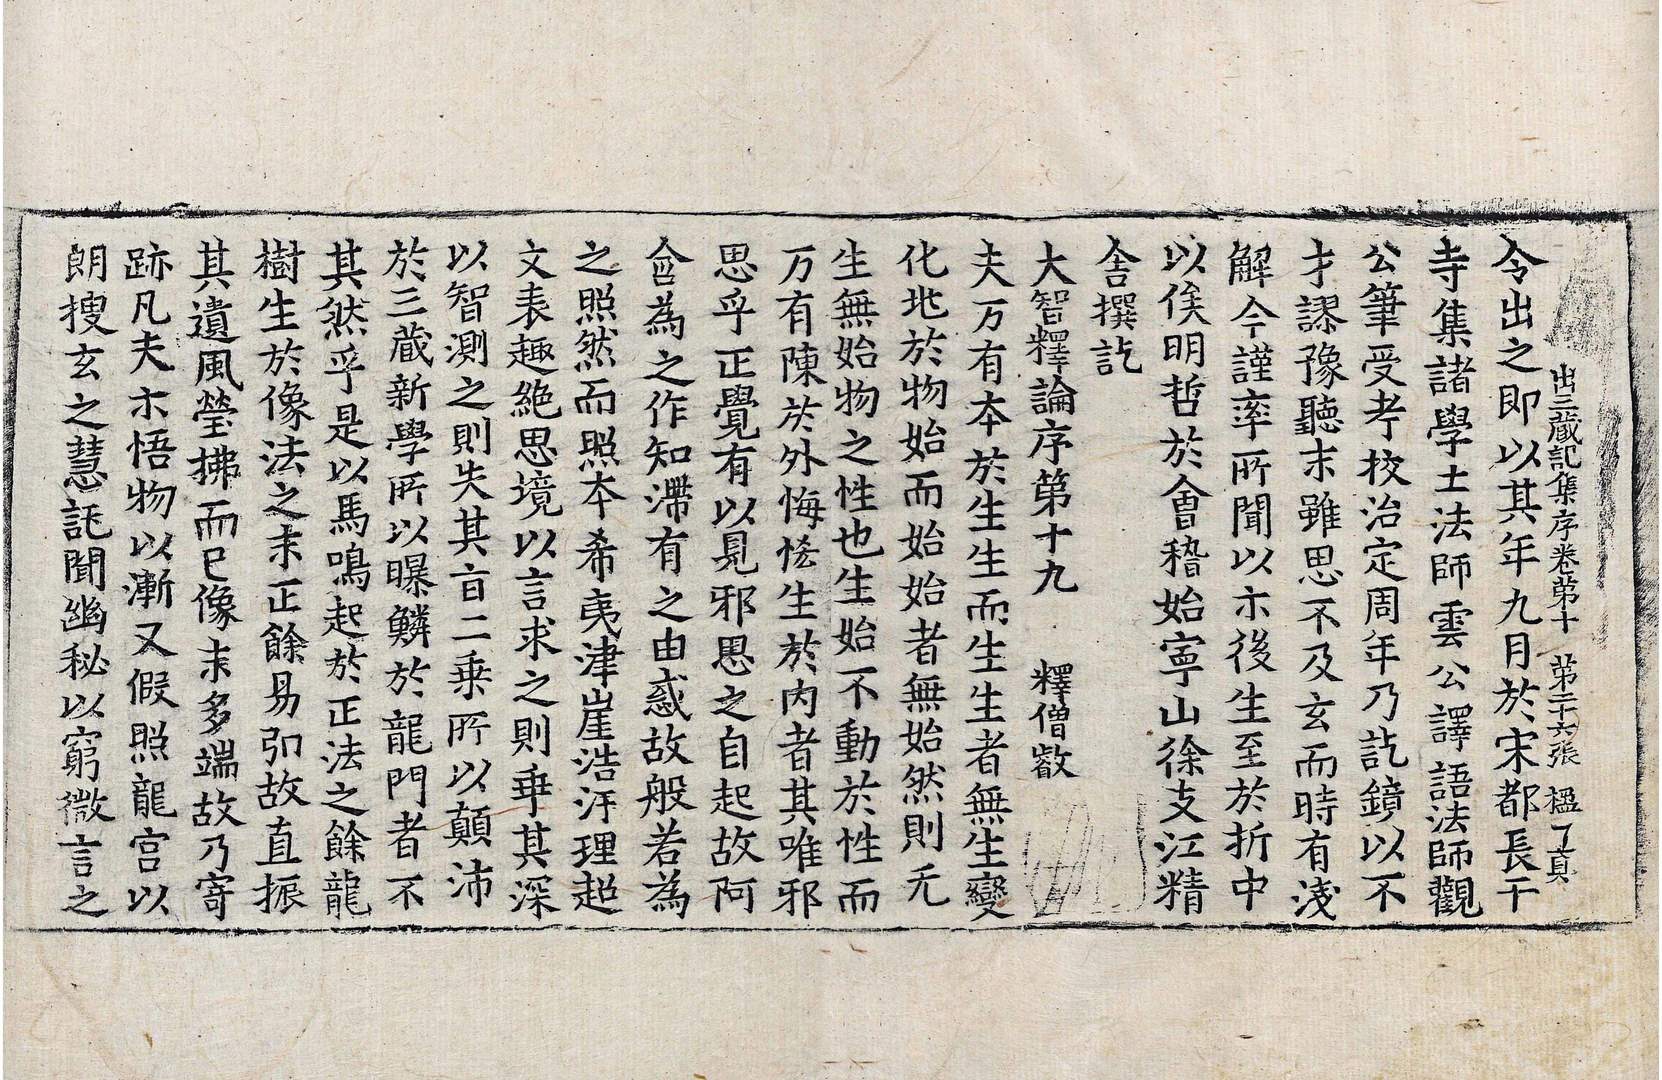 出三藏記集序卷第十　第二十六張　楹
令出之即以其年九月於宋都長干
寺集諸學士法師雲公譯語法師觀
公筆受考挍治定周年乃訖鏡以不
才謬豫聽末雖思不及玄而時有淺
解今謹率所聞以示後生至於折中
以俟明哲於會稽始寧山徐支江精
舎撰訖
大智釋論序第十九　釋僧叡
夫万有本於生生而生生者無生變
化地於物始而始始者無始然則无
生無始物之性也生始不動於性而
万有陳於外悔悋生於内者其唯邪
思乎正覺有以見邪思之自起故阿
含為之作知滯有之由惑故般若為
之照然而照本希夷津崖浩汙理超
文表趣絶思境以言求之則乖其深
以智測之則失其旨二乗所以顛沛
於三蔵新學所以曝鱗於龍門者不
其然乎是以馬鳴起於正法之餘龍
樹生於像法之末正餘易弘故直振
其遺風瑩拂而已像末多端故乃寄
跡凡夫示悟物以漸又假照龍宮以
朗搜玄之慧託聞幽秘以窮微言之